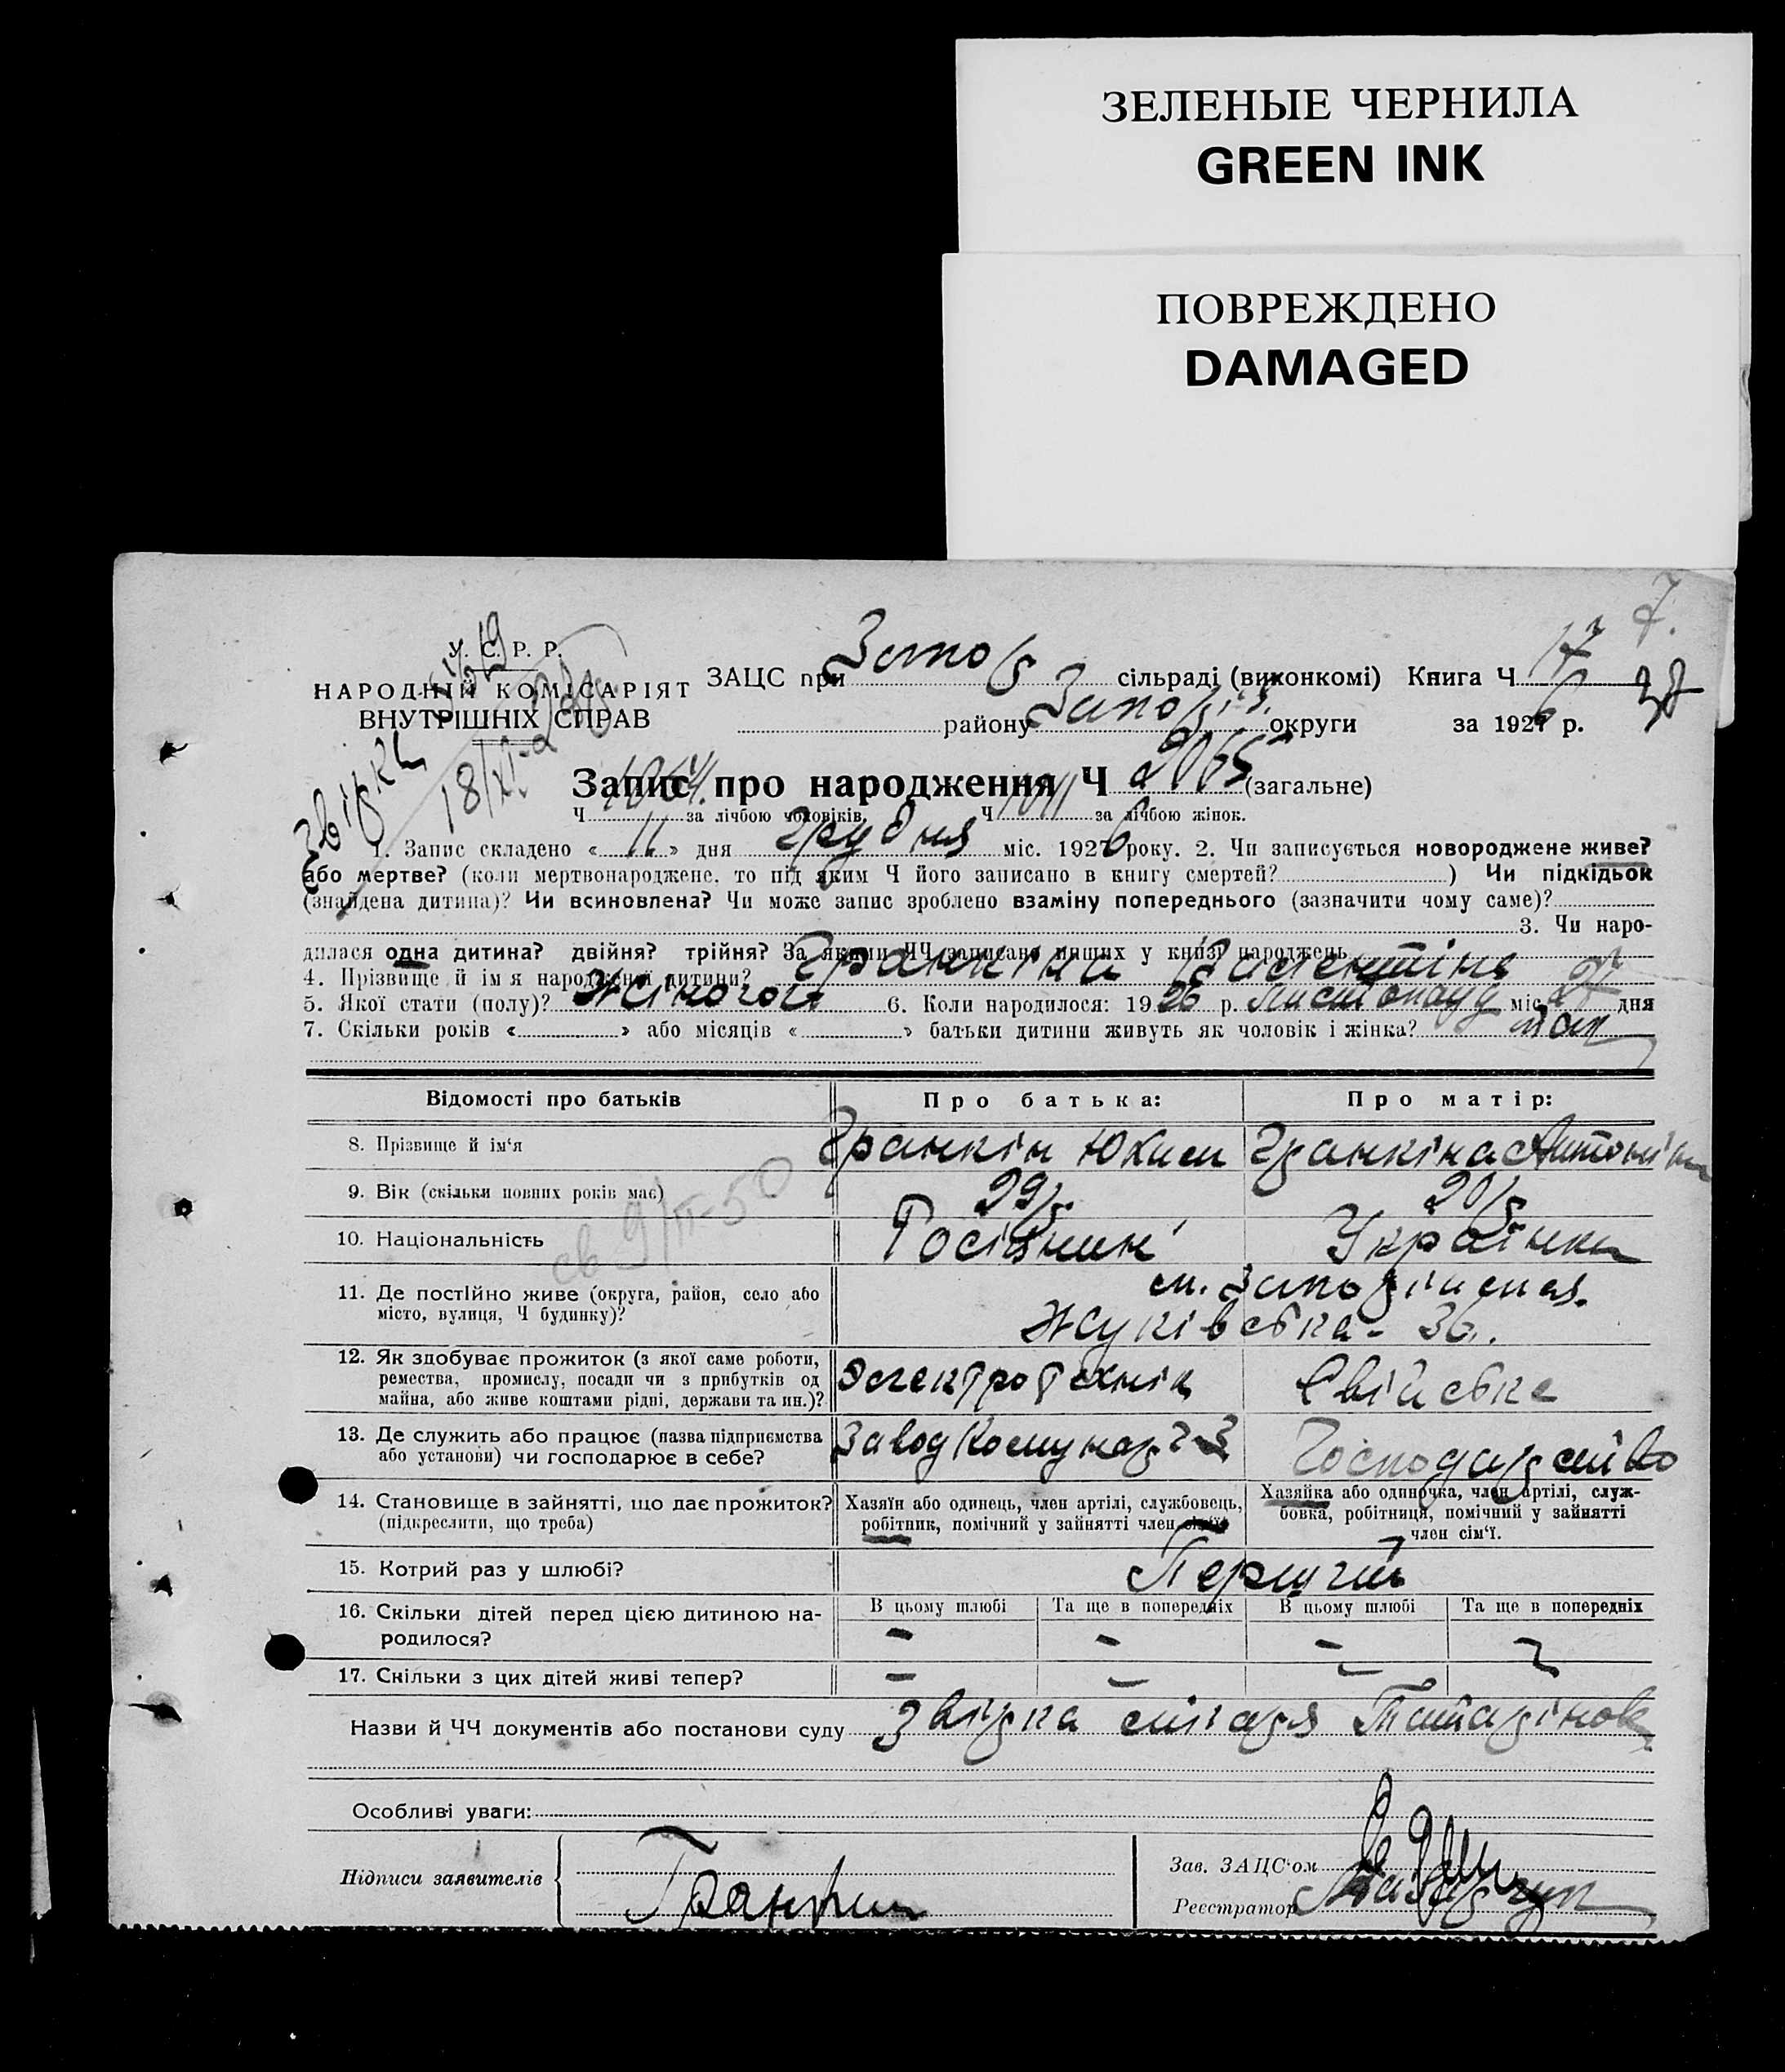 ЗЕЛЕНЫЕ ЧЕРНИЛА
GREEN INK
ПОВРЕЖДЕНО
DAMAGED
7.
У. С. Р. Р.
НАРОДНІЙ КОМІСАРІЯТ
ВНУТРІШНІХ СПРАВ
ЗАЦС при Запоріз сільраді (виконкомі) Книга Ч 17
району Запоріз. округи за 1926 р.
37
18/XI-
Запис про народження Ч 2065 (загальне)
Ч 1054 за лічбою чоловіків. Ч 1011 за лічбою жінок.
1. Запис складено « 11 » дня Грудня міс. 1926 року. 2. Чи записується новороджене живе?
або мертве? (коли мертвонароджене, то під яким Ч його записано в книгу смертей? ) Чи підкідьок
(знайдена дитина)? Чи всиновлена? Чи може запис зроблено взаміну попереднього (зазначити чому саме)?
3. Чи наро-
дилася одна дитина? двійня? трійня? За якими ЧЧ записано инших у книзі народжень
4. Прізвище й ім'я народженої дитини? Гранкіна Валентіна
5. Якої стати (полу)? Жіночої 6. Коли народилося: 1926 р. Листопаду міс. 27 дня
7. Скільки років « » або місяців « » батьки дитини живуть як чоловік і жінка? так
Відомості про батьків Про батька: Про матір:
8. Прізвище й ім'я Гранкін Юхим Гранкіна Антоніна
9. Вік (скільки повних років має) 29 р. 20 р.
10. Національність Росіянин Українка
11. Де постійно живе (округа, район, село або місто, вулиця, Ч будинку)? м. Запоріжжя.
Жуківська - 36.
12. Як здобуває прожиток (з якої саме роботи,
ремества, промислу, посади чи з прибутків од
майна, або живе коштами рідні, держави та ин.)? Електротехнік Свійське
13. Де служить або працює (назва підприємства
або установи) чи господарює в себе? Завод Комунар 2-3 Господарство
14. Становище в зайнятті, що дає прожиток?
(підкреслити, що треба)
Хазяїн або одинець, член артілі, службовець,
робітник, помічний у зайнятті член сім'ї.
Хазяйка або одиночка, член артілі, служ-
бовка, робітниця, помічний у зайнятті
член сім'ї.
15. Котрий раз у шлюбі? Перший
16. Скільки дітей перед цією дитиною на-
родилося?
В цьому шлюбі Та ще в попередніх В цьому шлюбі Та ще в попередніх
- - - -
17. Скільки з цих дітей живі тепер? - - -
св 9/II-50
Назви й ЧЧ документів або постанови суду звірка
Особливі уваги:
Підписи заявителів Гранкин
Зав. ЗАЦС'ом
Реєстратор